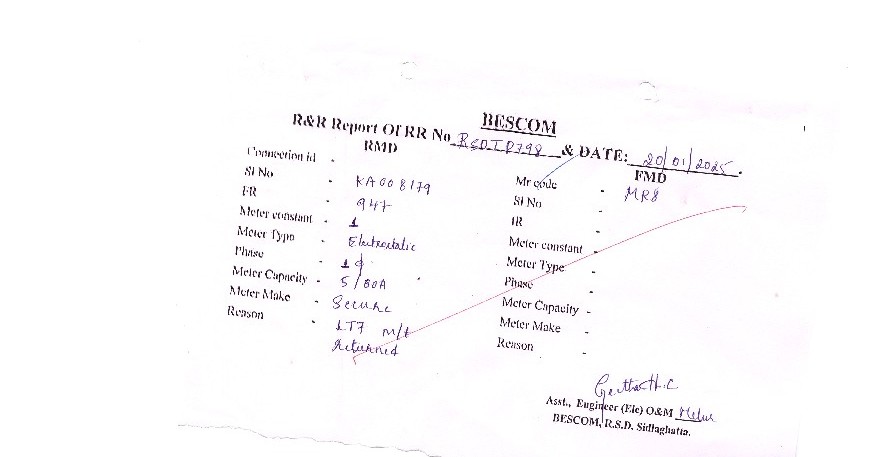 BESCOM
R&R Report Of RR No RSDTP798 & DATE: 20/01/2025.
RMD FMD
Connection id - Mr code - MR8
Sl No - KA008179 Sl No -
FR - 947 IR -
Meter constant - 1 Meter constant -
Meter Type - Electrostatic Meter Type -
Phase - 1φ Phase -
Meter Capacity - 5/80A Meter Capacity -
Meter Make - Secure Meter Make -
Reason - LT7 m/t Reason -
Returned
Geetha H.C
Asst., Engineer (Ele) O&M Melur
BESCOM, R.S.D. Sidlaghatta.